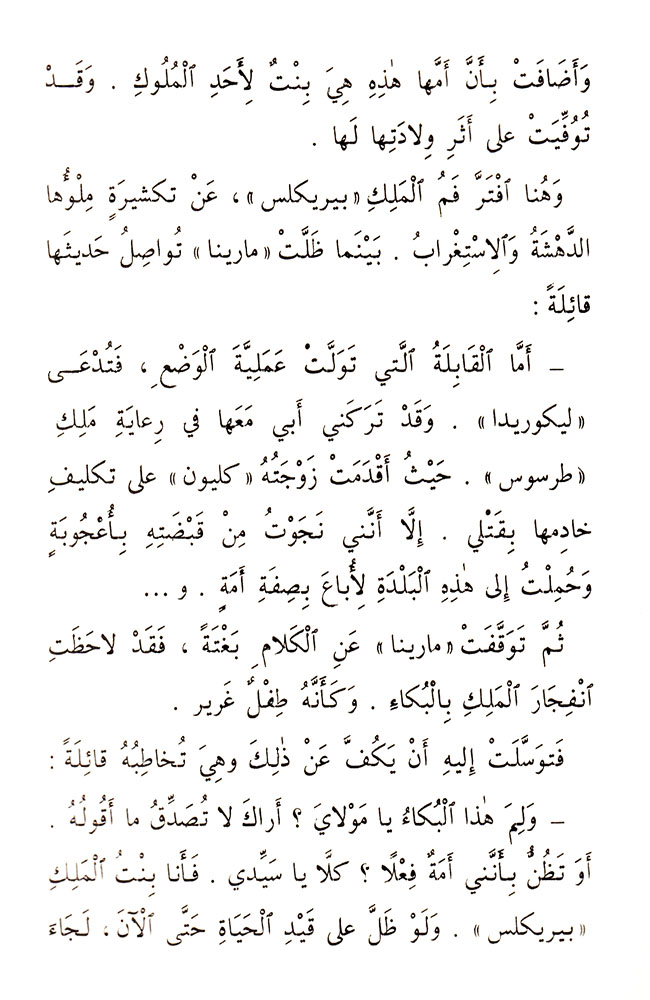 وَأَضَافَتْ بِأَنَّ أَمَّها هٰذِهِ هِيَ بِنْتٌ لِأَحَدِ ٱلْمُلُوكِ . وَقَـدْ
تُوُفِّيَتْ على أَثَرِ وِلادَتِها لَها .
وَهُنا ٱفْتَرَّ فَمُ ٱلْمَلِكِ «بيريكلس» ، عَنْ تكشيرَةٍ مِلْؤُها
الدَّهْشَةُ وَٱلِاسْتِغْرابُ . بَيْنَما ظَلَّتْ «مارينا» تُواصِلُ حَديثَها
قائِلَةً :
– أَمَّا ٱلْقابِلَةُ ٱلَّتي تَوَلَّتْ عَمَلِيَّةَ ٱلْوَضْعِ ، فَتُدْعَـى
«ليكوريدا» . وَقَدْ تَرَكَني أَبي مَعَها في رِعايَةِ مَلِكِ
«طرسوس» . حَيْثُ أَقْدَمَتْ زَوْجَتُهُ «كليون» على تكليفِ
خادِمها بِقَتْلي . إِلَّا أَنَّني نَجَوْتُ مِنْ قَبْضَتِهِ بِأُعْجُوبَةٍ
وَحُمِلْتُ إِلى هٰذِهِ ٱلْبَلْدَةِ لِأُباعَ بِصِفَةِ أَمَةٍ . و ...
ثُمَّ تَوَقَّفَتْ «مارينا» عَنِ ٱلْكَلامِ بَغْتَةً ، فَقَدْ لاحَظَتِ
ٱنْفِجَارَ ٱلْمَلِكِ بِٱلْبُكاءِ . وَكَأَنَّهُ طِفْلٌ غَرير .
فَتوَسَّلَتْ إِليهِ أَنْ يَكُفَّ عَنْ ذٰلِكَ وهِيَ تُخاطِبُهُ قائِلَةً :
– وَلِمَ هٰذا ٱلْبُكاءُ يا مَوْلايَ ؟ أَراكَ لا تُصَدِّقُ ما أَقُولُهُ .
أَوَ تَظُنُّ بِأَنَّني أَمَةٌ فِعْلًا ؟ كلَّا يا سَيِّدي . فَأَنا بِنْتُ ٱلْمَلِكِ
«بيريكلس» . وَلَوْ ظَلَّ على قَيْدِ ٱلْحَيَاةِ حَتَّى ٱلْآنَ ، لَجَاءَ